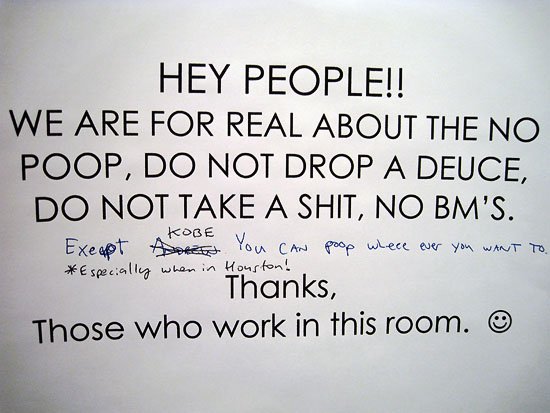 HEY PEOPLE!!
WE ARE FOR REAL ABOUT THE NO
POOP, DO NOT DROP A DEUCE,
DO NOT TAKE A SHIT, NO BM'S.
KOBE
Except You CAN poop where ever you want to.
*Especially when in Houston!
Thanks,
Those who work in this room. ☺